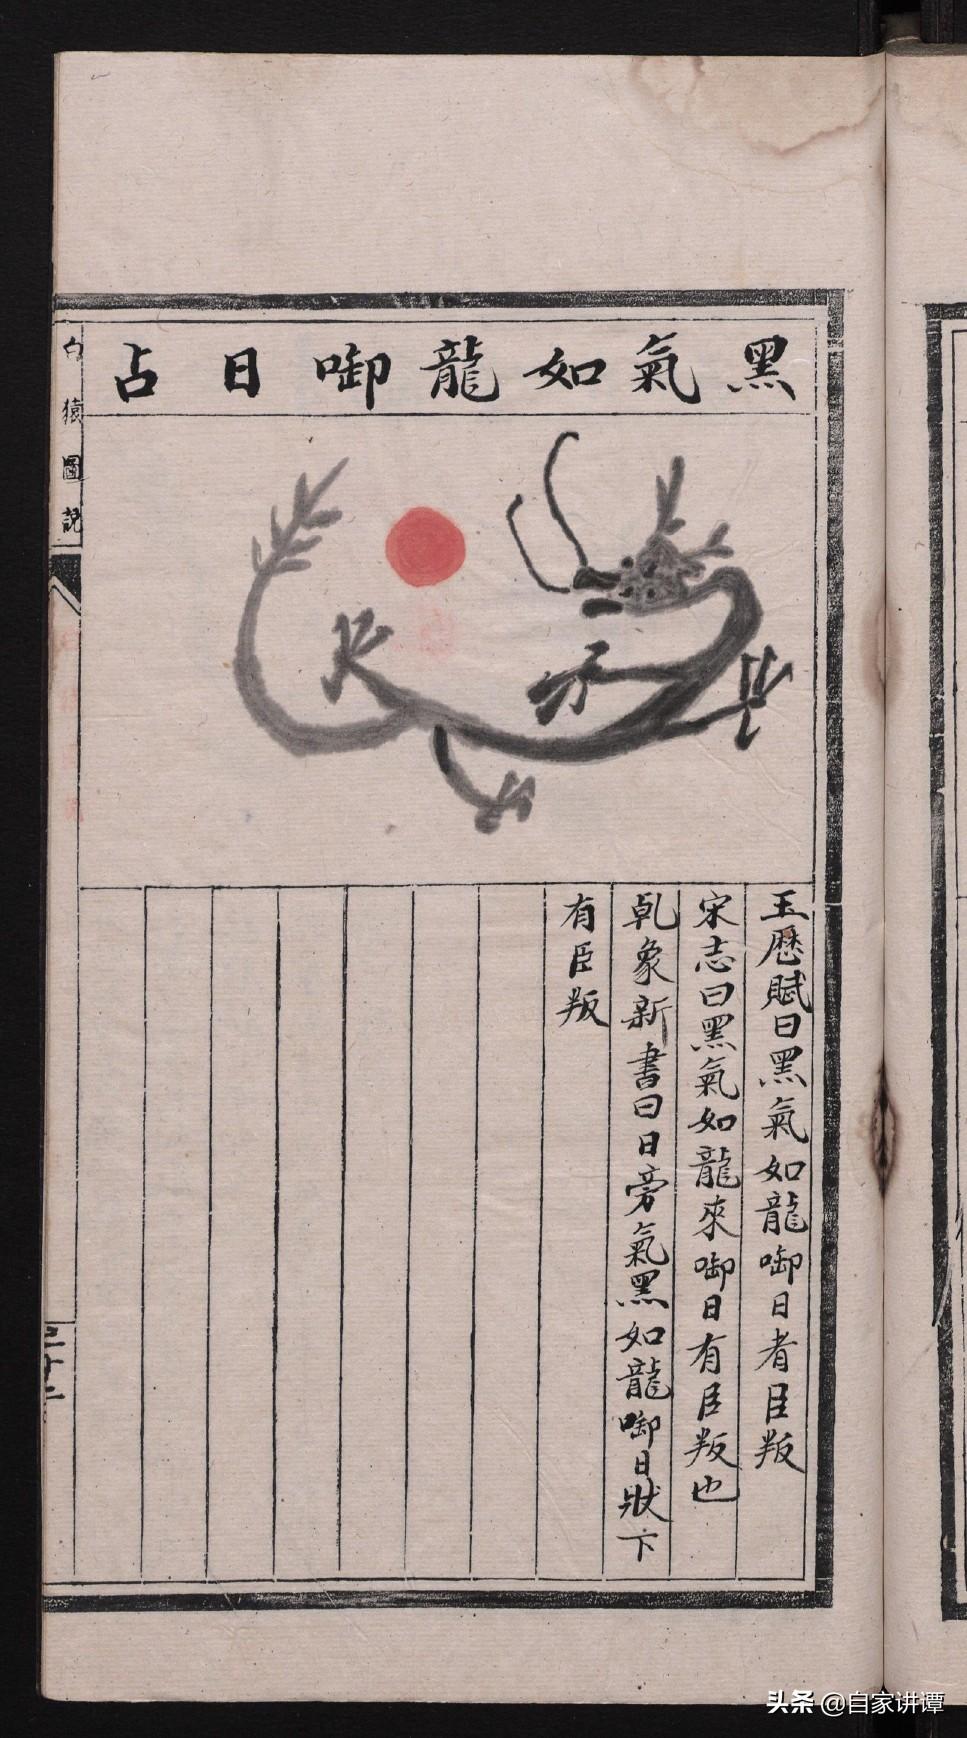 黑氣如龍啣日占
玉歷賦曰黑氣如龍啣日者臣叛
宋志曰黑氣如龍來啣日有臣叛也
乹象新書曰日旁氣黑如龍啣日狀下
有臣叛
白猿圖說
三十二
头条 @自家讲谭